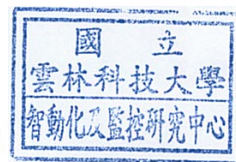 國立
雲林科技大學
智動化及監控研究中心